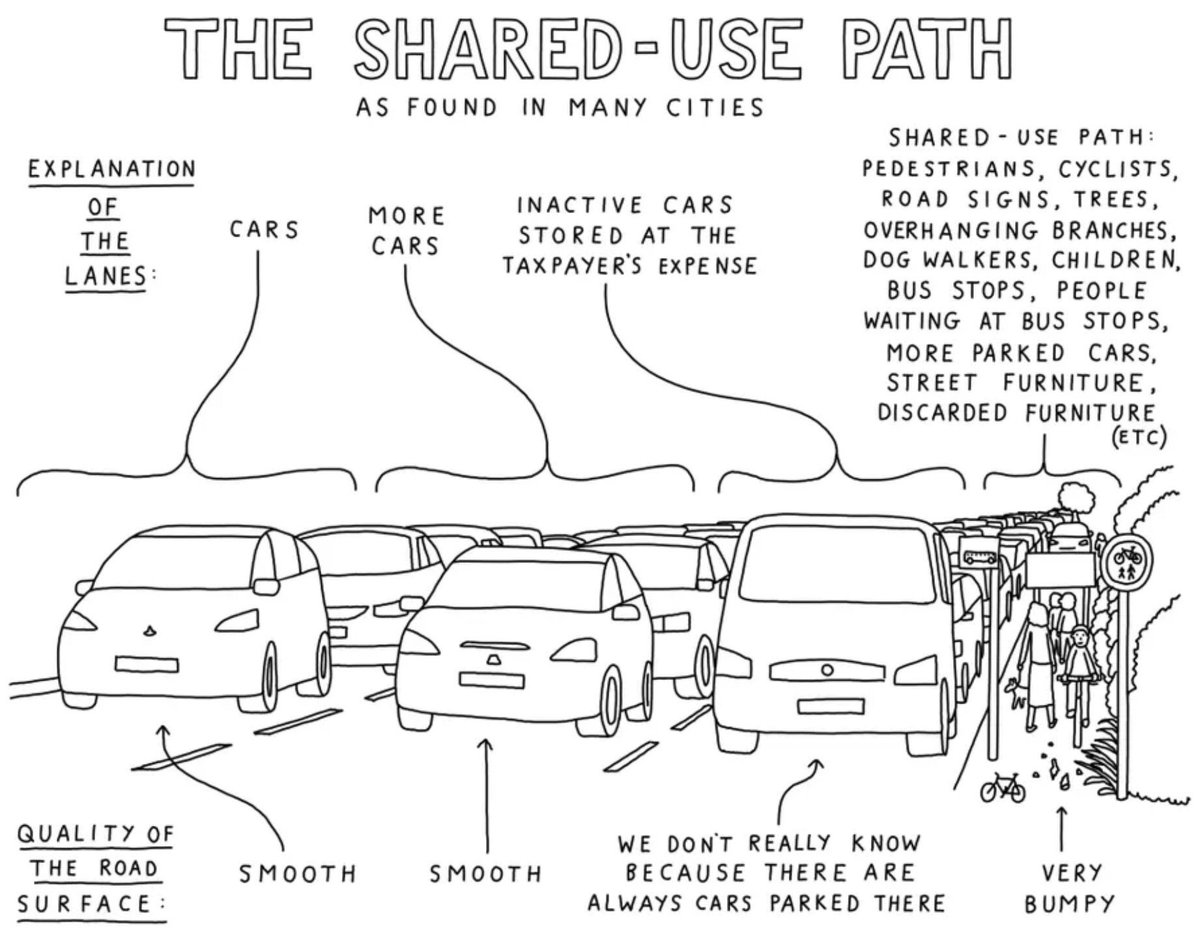 THE SHARED-USE PATH
AS FOUND IN MANY CITIES
EXPLANATION
OF
THE
LANES:
CARS
MORE
CARS
INACTIVE CARS
STORED AT THE
TAXPAYER'S EXPENSE
SHARED-USE PATH:
PEDESTRIANS, CYCLISTS,
ROAD SIGNS, TREES,
OVERHANGING BRANCHES,
DOG WALKERS, CHILDREN,
BUS STOPS, PEOPLE
WAITING AT BUS STOPS,
MORE PARKED CARS,
STREET FURNITURE,
DISCARDED FURNITURE
(ETC)
QUALITY OF
THE ROAD
SURFACE:
SMOOTH
SMOOTH
WE DON'T REALLY KNOW
BECAUSE THERE ARE
ALWAYS CARS PARKED THERE
VERY
BUMPY